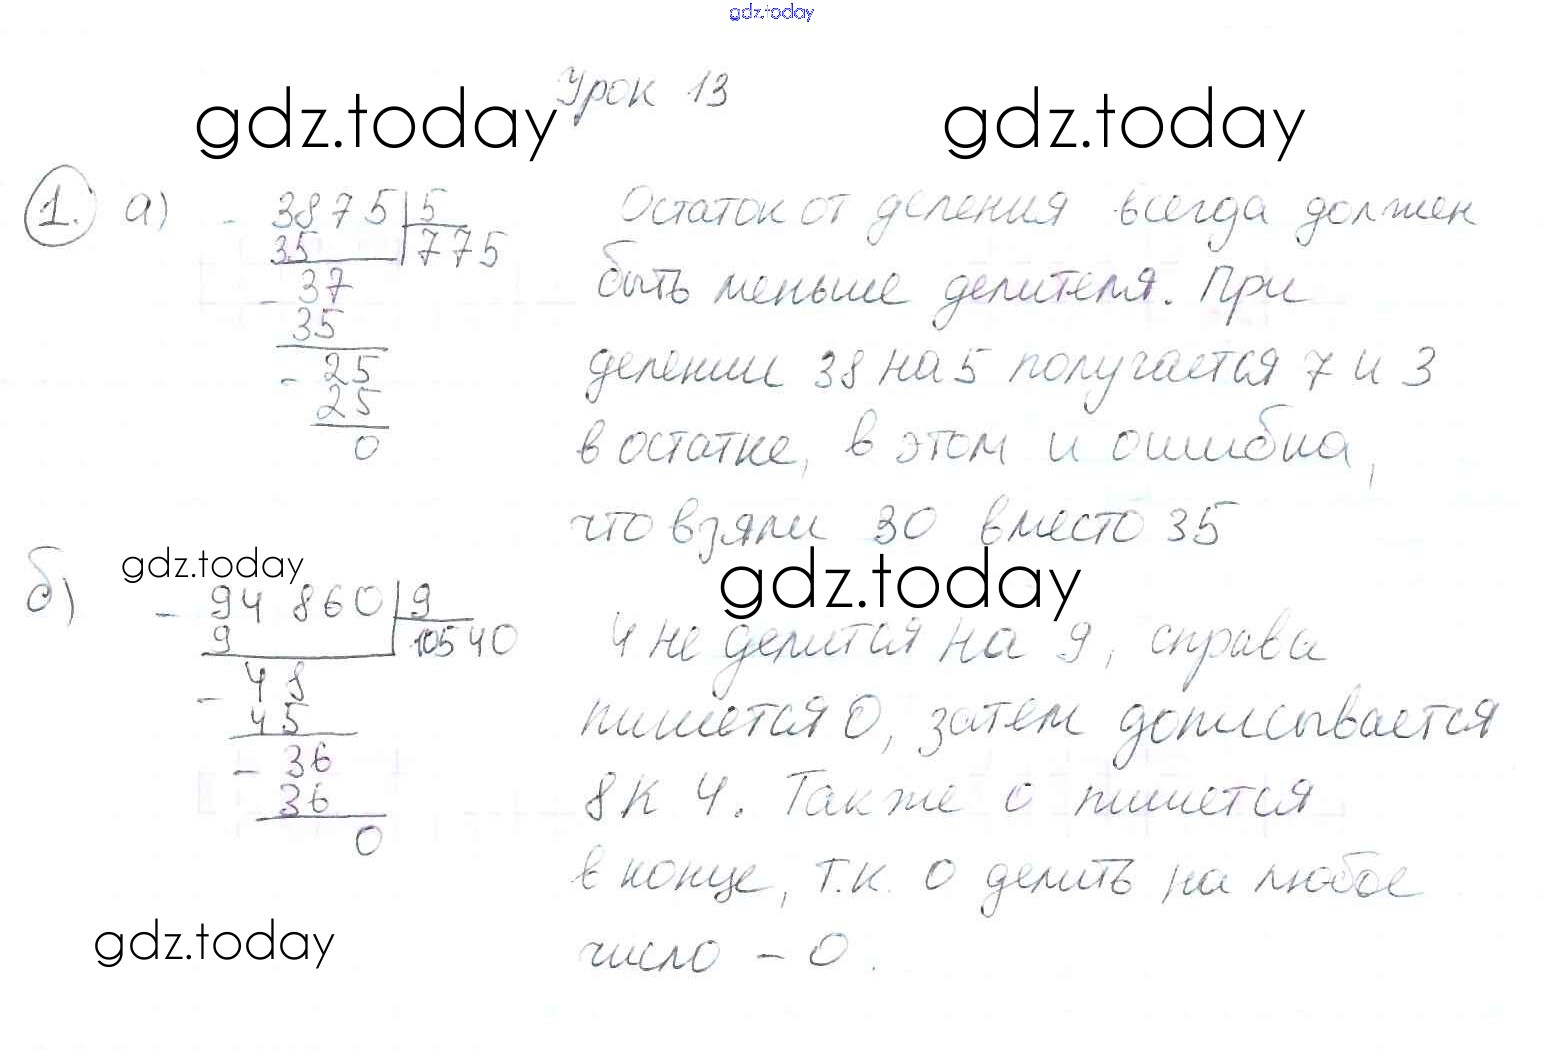 gdz.today
Урок 13
gdz.today gdz.today
1. а) - 3875 | 5
35 775
- 37
35
- 25
25
0
Остаток от деления всегда должен
быть меньше делителя. При
делении 38 на 5 получается 7 и 3
в остатке, в этом и ошибка,
что взяли 30 вместо 35
gdz.today
gdz.today
б) - 94 860 | 9
9 10540
- 48
45
- 36
36
0
4 не делится на 9, справа
пишется 0, затем дописывается
8 к 4. Также 0 пишется
в конце, т.к. 0 делить на любое
число – 0.
gdz.today